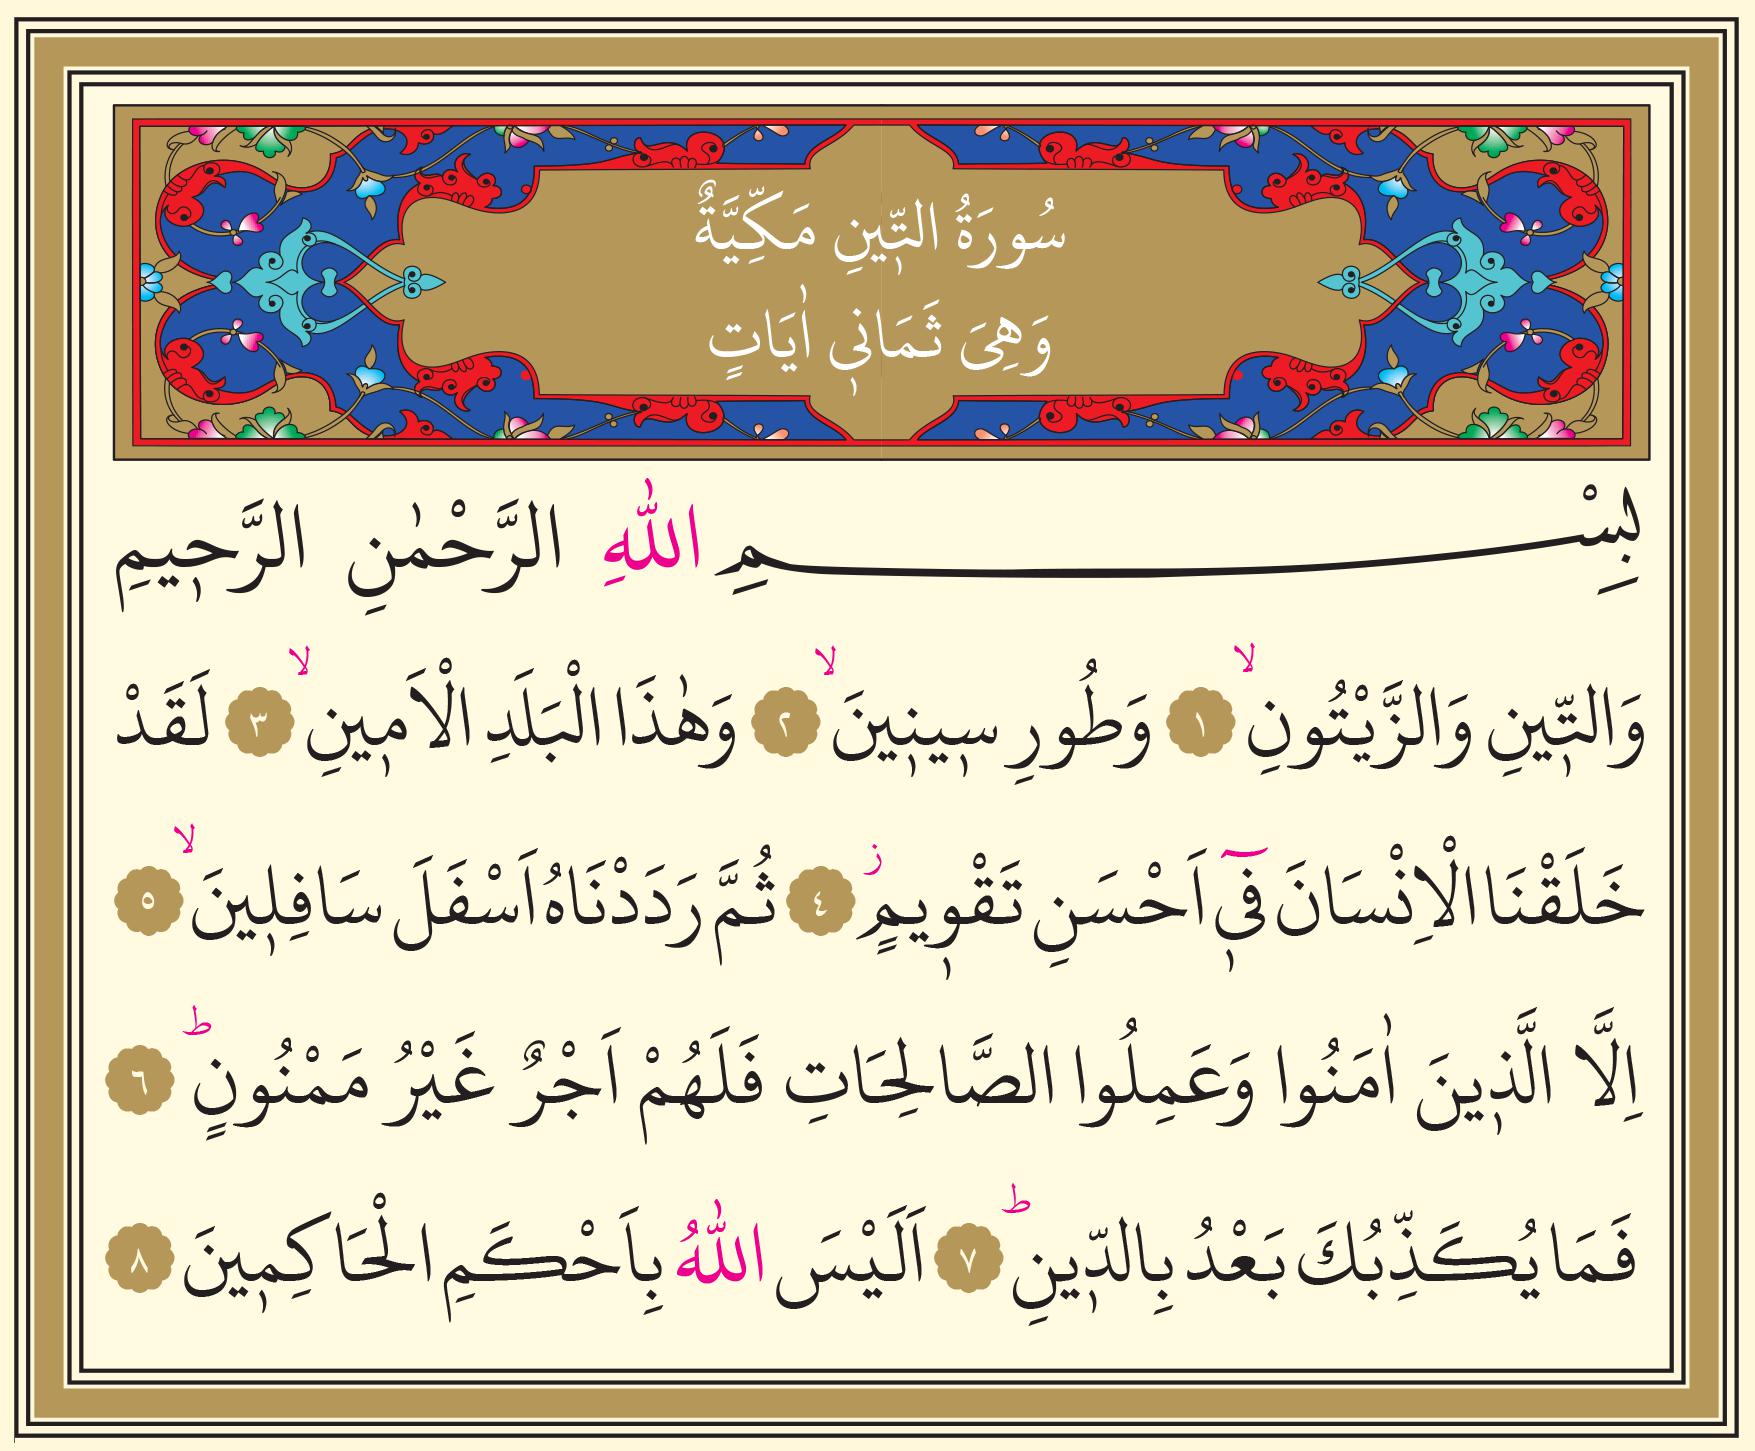 سُورَةُ التّ۪ينِ مَكِّيَّةٌ
وَهِيَ ثَمَان۪ي اٰيَاتٍ
بِسْــــــــــــــمِ اللّٰهِ الرَّحْمٰنِ الرَّح۪يمِ
وَالتّ۪ينِ وَالزَّيْتُونِۙ ﴿١﴾ وَطُورِ س۪ين۪ينَۙ ﴿٢﴾ وَهٰذَا الْبَلَدِ الْاَم۪ينِۙ ﴿٣﴾ لَقَدْ
خَلَقْنَا الْاِنْسَانَ ف۪ٓي اَحْسَنِ تَقْو۪يمٍۘ ﴿٤﴾ ثُمَّ رَدَدْنَاهُ اَسْفَلَ سَافِل۪ينَۙ ﴿٥﴾
اِلَّا الَّذ۪ينَ اٰمَنُوا وَعَمِلُوا الصَّالِحَاتِ فَلَهُمْ اَجْرٌ غَيْرُ مَمْنُونٍۜ ﴿٦﴾
فَمَا يُكَذِّبُكَ بَعْدُ بِالدّ۪ينِۜ ﴿٧﴾ اَلَيْسَ اللّٰهُ بِاَحْكَمِ الْحَاكِم۪ينَ ﴿٨﴾